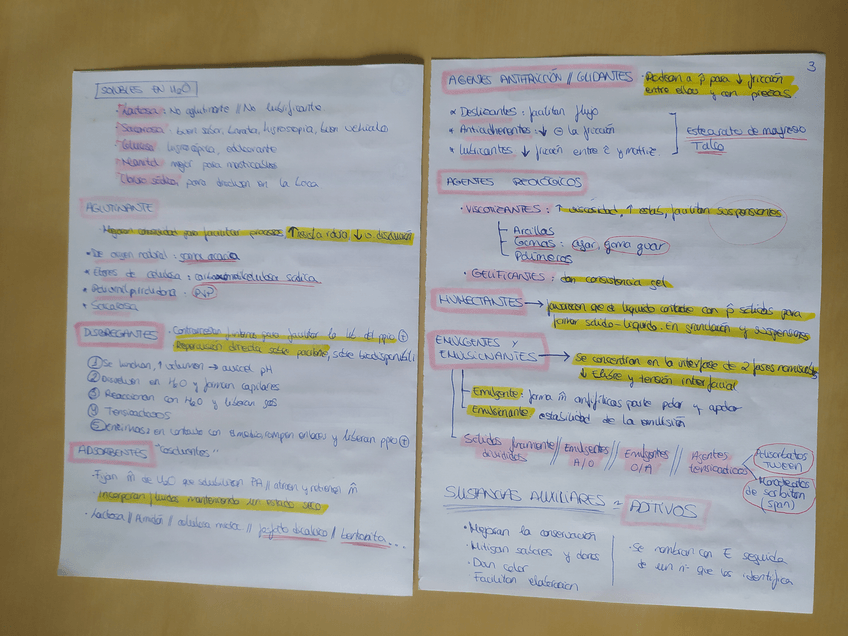 SOLUBLES EN H₂O
Lactosa: No aglutinante // No lubrificante
Sacarosa: buen sabor, barata, higroscopia, buen vehículo
Glucosa higroscópica, edulcorante
Manitol mejor para masticables
Cloruro sódico, para disolver en la boca
AGLUTINANTE
Mejoran para facilitar procesos, ↑ ↓ v. disolución
* De origen natural: goma arábiga
* Éteres de celulosa: sódica
* Polivinilpirrolidona: PVP
* Sacarosa
DISGREGANTES
· Contrarrestan para facilitar la lib del ppio
Repercusión directa sobre paciente, sobre biodisponibili
① Se hinchan, ↑ volumen → aus. pH
② Disuelven en H₂O y forman capilares
③ Reaccionan con H₂O y liberan gas
④ Tensioactivos
⑤ en contacto con rompen enlaces y liberan ppio
ADSORBENTES "
· Fijan m̂ de H₂O que PA // atraen y retienen m̂
Incorporan fluidos manteniendo un estado SECO
· Lactosa // Almidón // celulosa // fosfato dicálcico / bentonita...
3
AGENTES ANTIFRICCIÓN // GLIDANTES · Rodean a p̂ para ↓ fricción
entre ellas y con piezas
* Deslizantes: facilitan flujo
* Antiadherentes: ↓ ⊖ la fricción
* Lubricantes ↓ fricción entre c y matriz.
estearato de magnesio
Talco
AGENTES REOLÓGICOS
· VISCOSIZANTES: ↑ viscosidad, ↑ estab, facilitan suspensiones
Arcillas
Gomas: agar, goma guar
Polímeros
· GELIFICANTES: dan consistencia gel
HUMECTANTES → favorecen que el líquido contacte con p̂ sólidas para
formar sólido-líquido. En granulación y suspensiones
EMULGENTES Y
EMULSIONANTES → Se concentran en la interfase de 2 fases
↓ E fase y tensión interfacial
Emulgente: forma m̂ anfifílicas parte polar y apolar
Emulsionante estabilidad de la emulsión
Sólidos finamente divididos // Emulgentes A/O // Emulgentes O/A // Agentes tensioactivos
Polisorbatos
TWEEN
de sorbitan
(Span)
SUSTANCIAS AUXILIARES = ADTIVOS
· Mejoran la conservación
· Mitigan sabores y olores
· Dan color
Facilitan elaboración
· Se nombran con E seguida
de un nº que los identifica